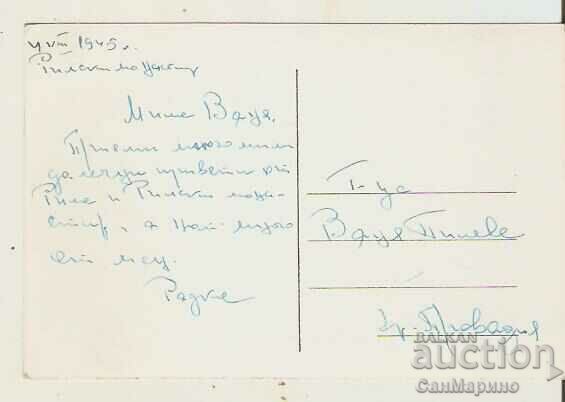 1945 г.
Рилски манастир
Мила Вауя,
Приеми много мили
далечни привети от
Рила и Рилски мона-
стир, а най-много
от мен.
Радка
Г-ца
Вауя Пилева
гр. Провадия
BALKAN
auction
СанМарино